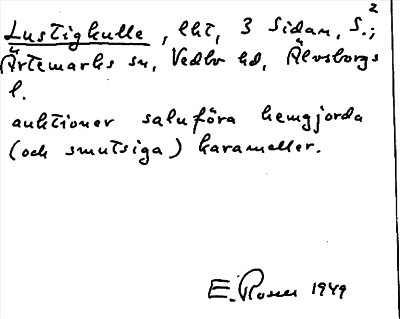 Lustigkulle, lht, 3 Sidan, S.²;
Ärtemarks sn, Vedbo hd, Älvsborgs
l.
auktioner saluföra hemgjorda
(och smutsiga) karameller.
E. Rosen 1949